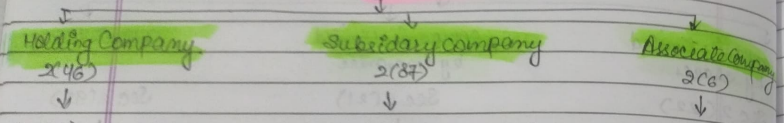 Holding Company
2(46)
Subsidary company
2(87)
Associate Company
2(6)